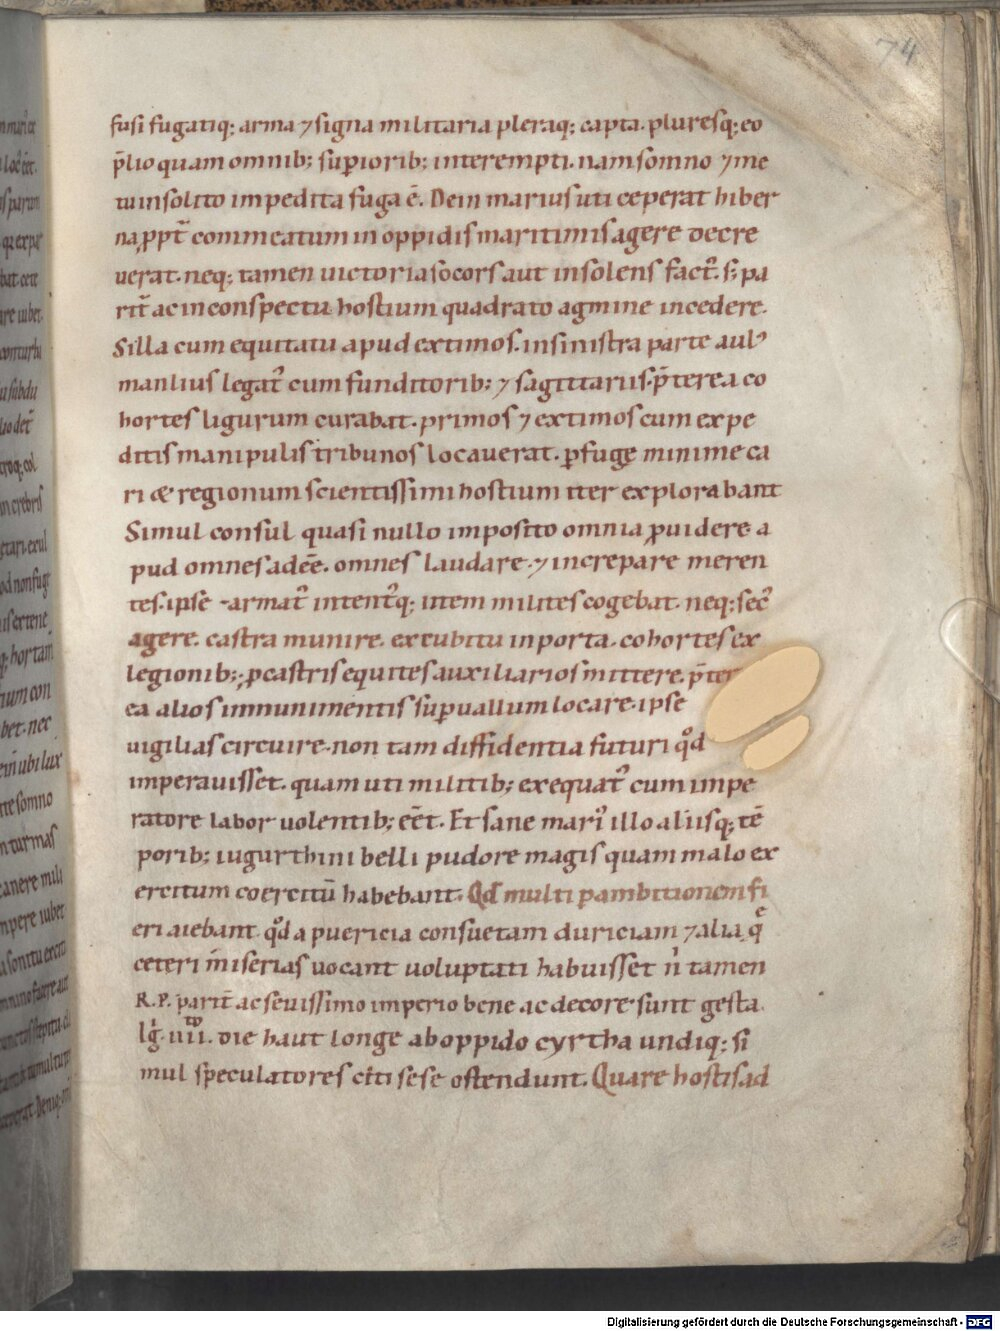 74
fusi fugatiq; arma ⁊ signa militaria pleraq; capta. pluresq; eo
p̄lio quam omnib; superiorib; interempti. nam somno ⁊ me
tu insolito impedita fuga ē. Dein marius uti ceperat hiber
na ꝓpt̄ commeatum in oppidis maritimis agere decre
uerat. neq; tamen uictoria socors aut insolens fact᷒. s; pa
rit̄ ac in conspectu hostium quadrato agmine incedere.
Silla cum equitatu apud extimos. in sinistra parte aul᷒
manlius legat᷒ cum funditorib; ⁊ sagittariis. p̄terea co
hortes ligurum curabat. primos ⁊ extimos cum expe
ditis manipulis tribunos locauerat. ꝑfugę minime ca
ri & regionum scientissimi hostium iter explorabant
Simul consul quasi nullo imposito omnia ꝓuidere a
pud omnes adeē. omnes laudare. ⁊ increpare meren
tes. ipse armat᷒ intent᷒q; item milites cogebat. neq; sec᷒
agere. castra munire. excubitu in porta. cohortes ex
legionib; ꝓ castris equites auxiliarios mittere. p̄ter
ea alios in munimentis suꝑ uallum locare. ipse
uigilias circuire. non tam diffidentia futuri qd̄
imperauisset. quam uti militib; exequat᷒ cum impe
ratore labor uolentib; eēt. Et sane mari᷒ illo aliisq; tē
porib; iugurthini belli pudore magis quam malo ex
ercitum coercitū habebant. Qd̄ multi ꝑ ambitionem fi
eri aiebant. qd̄ a puericia consuetam duriciam ⁊ alia q̄
ceteri miserias uocant uoluptati habuisset n̄ tamen
R.P. parit̄ ac seuissimo imperio bene ac decore sunt gesta.
Ig̊ iiii. to die haut longe ab oppido cyrtha undiq; si
mul speculatores citi sese ostendunt. Quare hostis ad
Digitalisierung gefördert durch die Deutsche Forschungsgemeinschaft - DFG